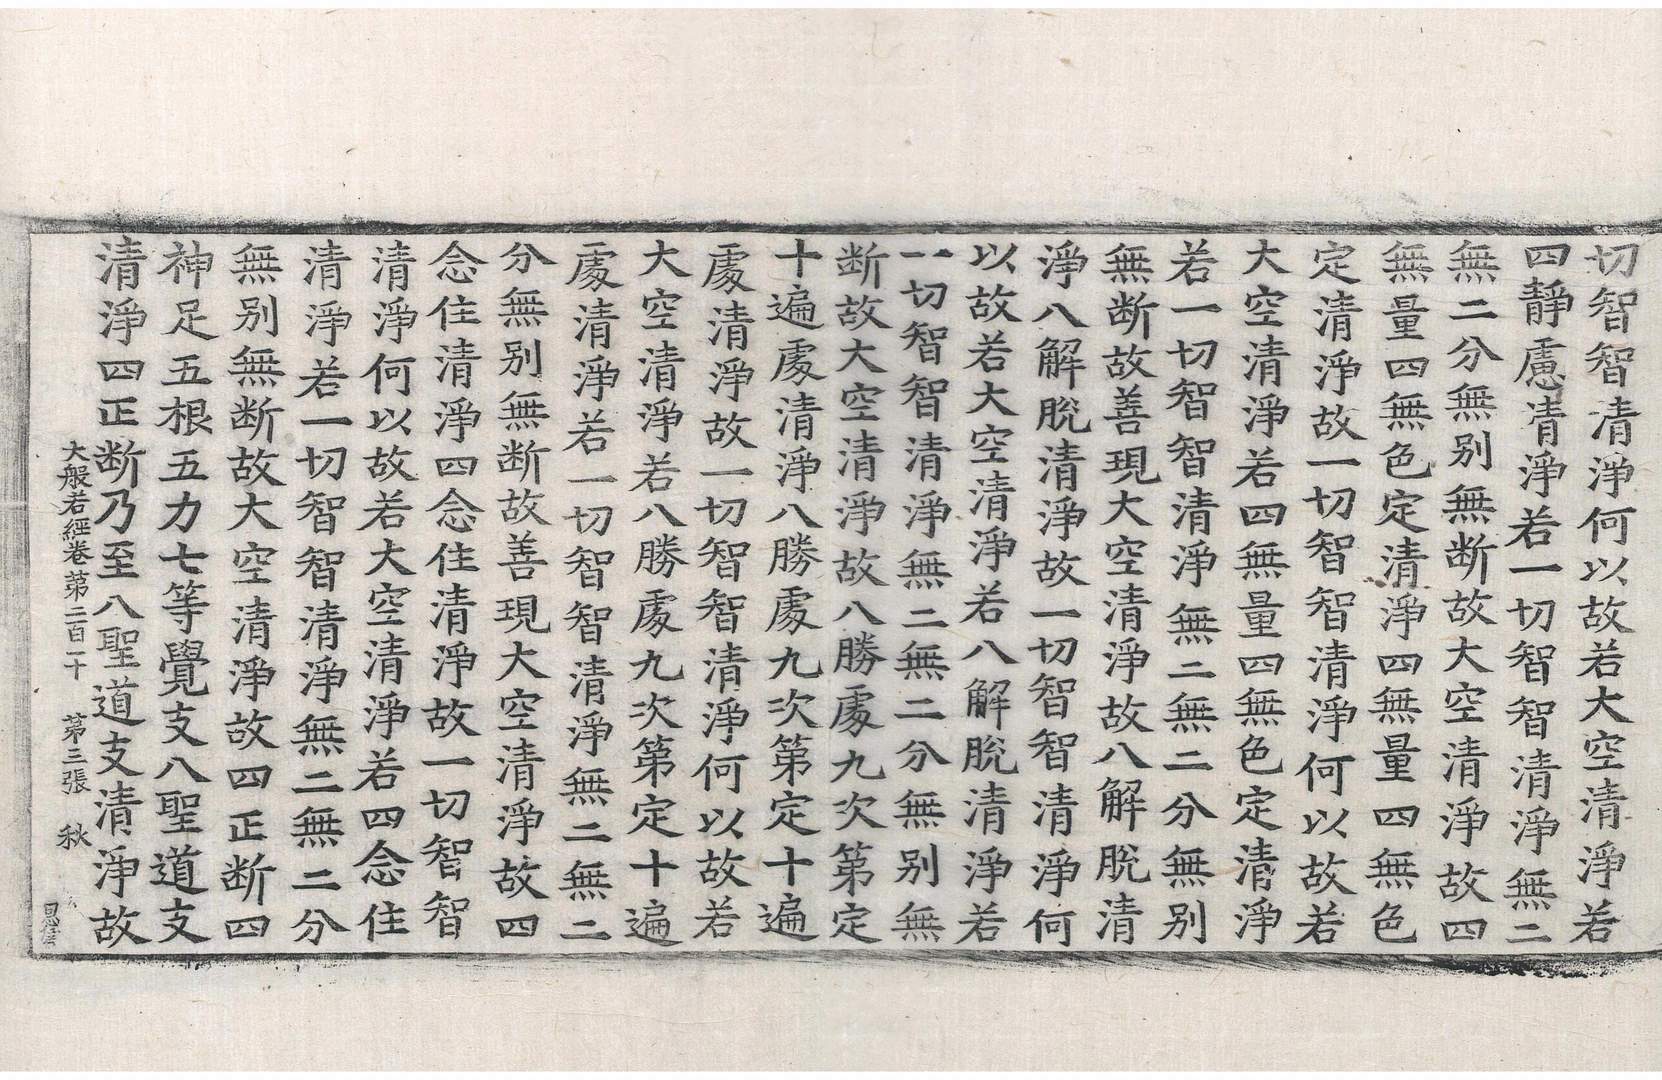 切智智清淨何以故若大空清淨若
四靜慮清淨若一切智智清淨無二
無二分無别無断故大空清淨故四
無量四無色定清淨四無量四無色
定清淨故一切智智清淨何以故若
大空清淨若四無量四無色定清淨
若一切智智清淨無二無二分無别
無断故善現大空清淨故八解脫清
淨八解脫清淨故一切智智清淨何
以故若大空清淨若八解脫清淨若
一切智智清淨無二無二分無别無
断故大空清淨故八勝䖏九次第定
十遍䖏清淨八勝䖏九次第定十遍
䖏清淨故一切智智清淨何以故若
大空清淨若八勝䖏九次第定十遍
䖏清淨若一切智智清淨無二無二
分無别無断故善現大空清淨故四
念住清淨四念住清淨故一切智智
清淨何以故若大空清淨若四念住
清淨若一切智智清淨無二無二分
無别無断故大空清淨故四正断四
神足五根五力七等覺支八聖道支
清淨四正断乃至八聖道支清淨故
大般若經卷第二百一十 第三張 秋